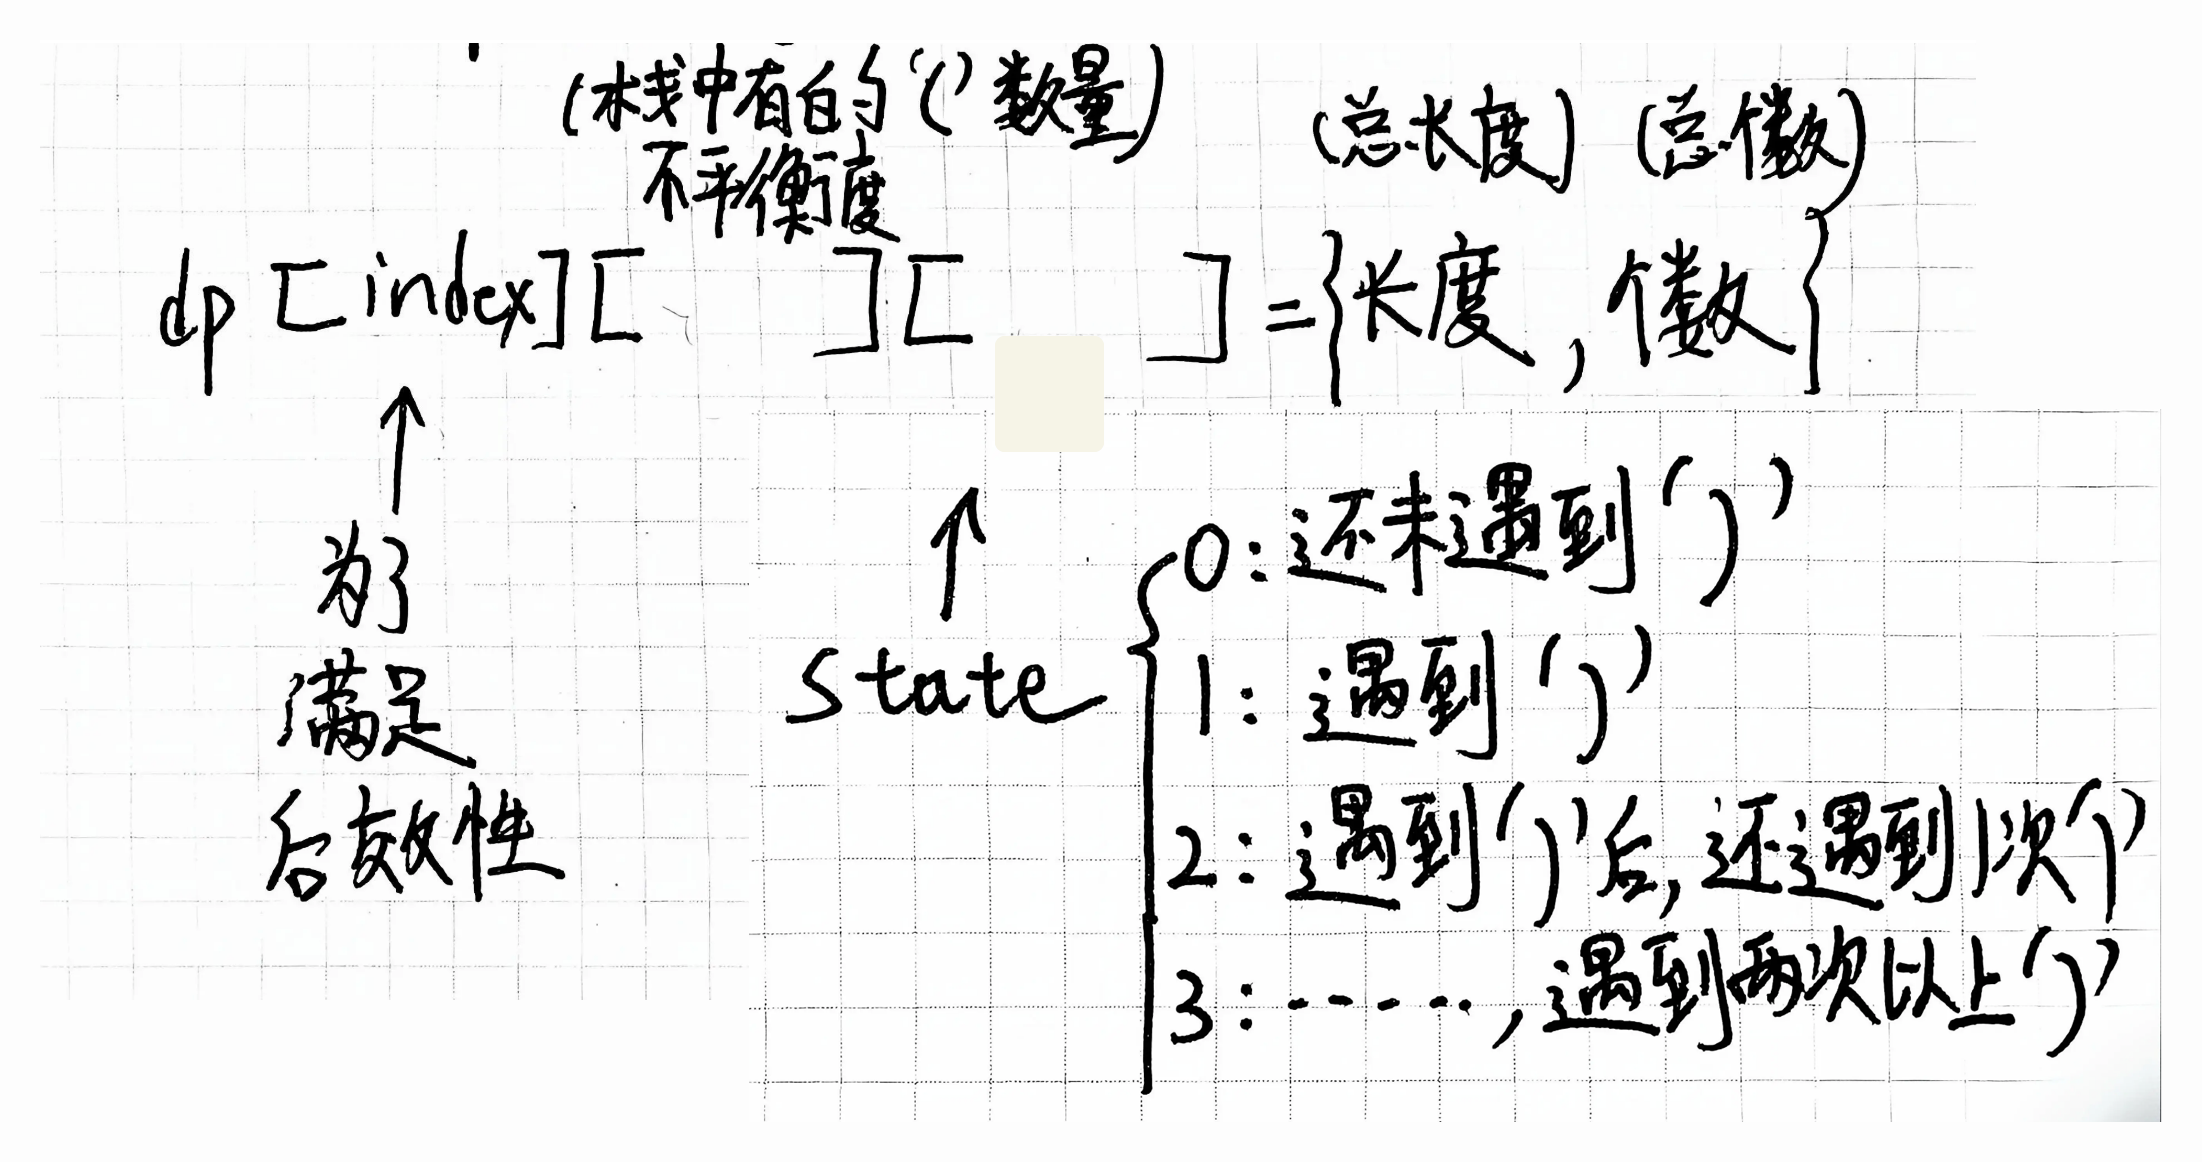 (栈中有的'('数量)
不平衡度
(总长度) (总个数)
dp [index][ ][ ]={长度,个数}
为了
满足
后效性
state
0:还未遇到')'
1:遇到')'
2:遇到')'后,还遇到1次')'
3:······,遇到两次以上')'